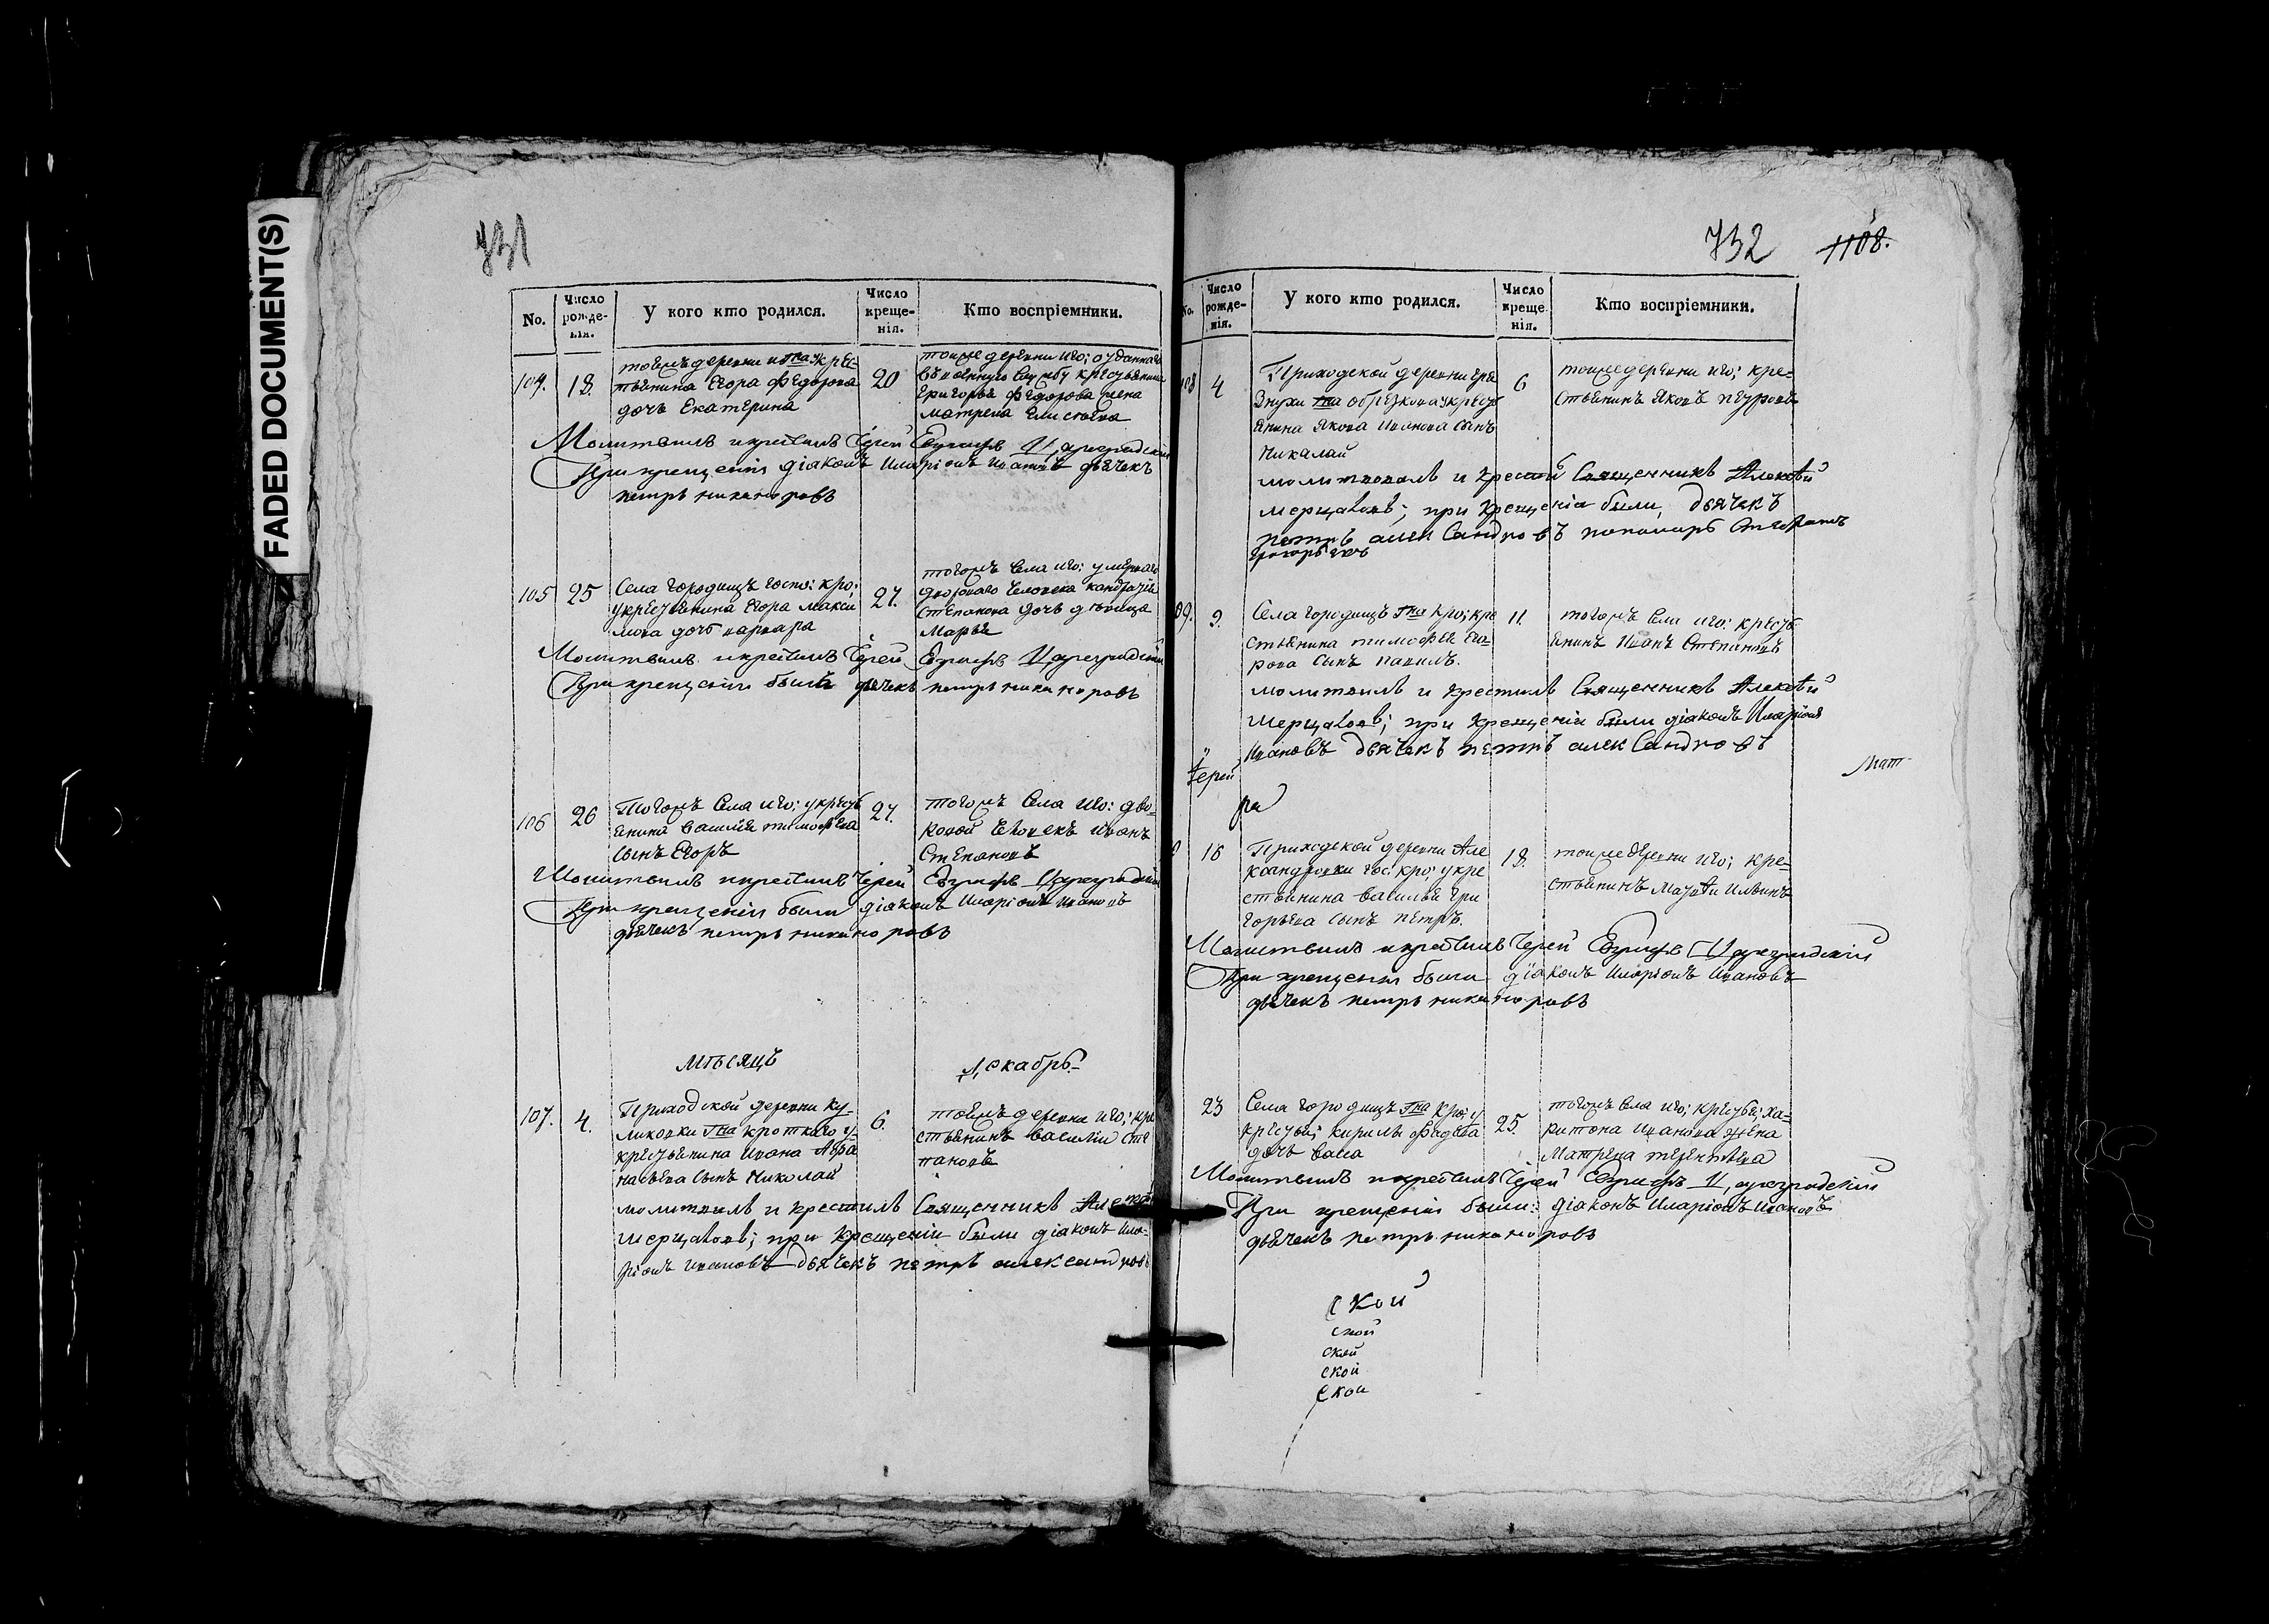 FADED DOCUMENT(S)
731
No.
Число рожде-нія.
У кого кто родился.
Число креще-нія.
Кто воспріемники.
104. 18. тоежъ деревни и гна у крес-
тьянина Егора Федорова
дочь Екатерина
20
тоиже деревни иго; отданнаго
въ военную службу крестьянина
Григорья Федорова жена
матрена Елисеева
Молитвилъ икрестилъ Іерей Евграфъ Цареградскій
При крещеніи діаконъ Иларіонъ Ивановъ дьячекъ
петръ никаноровъ
105 25 Села городищъ госпо: кро;
у крестьянина Егора Макси
мова дочь варвара
27.
тогожъ села иго; умершаго
двороваго человека кандратія
Степанова дочь девица
Марья
Молитвилъ икрестилъ Іерей Евграфъ Цареградскій
При крещеніи былъ дьячекъ петръ никаноровъ
106 26 Тогожъ села иго; у кресть
янина василія тимофеева
сынъ Егоръ
27.
тогожъ села иго: дво-
ровой человекъ Иванъ
Степановъ
Молитвилъ икрестилъ Іерей Евграфъ Цареградскій
При крещеніи были діаконъ Иларіонъ Ивановъ
дьячекъ петръ никаноровъ
Мѣсяцъ Декабрь.
107. 4. Приходской деревни Ку-
ликовки гна кроткаго у
крестьянина Ивана Афа
насьева сынъ Николай
6.
тоежъ деревни иго; кре
стьянинъ василіи сте
пановъ
молитвилъ и крестилъ Священникъ Алексѣй
Мерцаловъ; при крещеніи были діаконъ Ила-
ріонъ Ивановъ дьячекъ петръ александровъ
732 1108.
No.
Число рожде-нія.
У кого кто родился.
Число креще нія.
Кто воспріемники.
108 4 Приходской деревни Гря
знухи гна обрезкова у кресть
янина Якова Иванова сынъ
Никалай
6
тоиже деревни иго; кре-
стьянинъ Яковъ петровъ
молитвовалъ и крестилъ Священникъ Алексѣй
мерцаловъ; при крещеніи были, дьячекъ
петръ александровъ пономарь Стефанъ
григорьевъ
09. 9. Села городищъ гна кро; кре
стьянина тимофея Его-
рова сынъ павилъ.
11.
тогожъ села иго: кресть-
янинъ Иванъ Степановъ
молитвилъ и крестилъ Священникъ Алексѣй
Мерцаловъ; при крещеніи были діаконъ Иларіонъ
Ивановъ дьячекъ петръ александровъ
Іерей
Мат
ра
16 Приходской деревни Але
ксандровки гос: кро: у кре
стьянина василья Гри
горьева сынъ петръ.
18.
тоиже деревни иго; кре-
стьянинъ Матвѣи Ильинъ
Молитвилъ икрестилъ Іерей Евграфъ Цареградскій
При крещеніи были діаконъ Иларіонъ Ивановъ
дьячекъ петръ никаноровъ
23 Села городищъ гна кро; у
крестья; кирилы Фадеева
дочь васа
25.
тогожъ села иго; крестья; ха-
ритона Иванова жена
Матрена терентьева
Молитвилъ икрестилъ Іерей Евграфъ Цареградскій
При крещеніи были: діаконъ Иларіонъ Ивановъ
дьячекъ петръ никаноровъ
ской
ской
ской
ской
ской